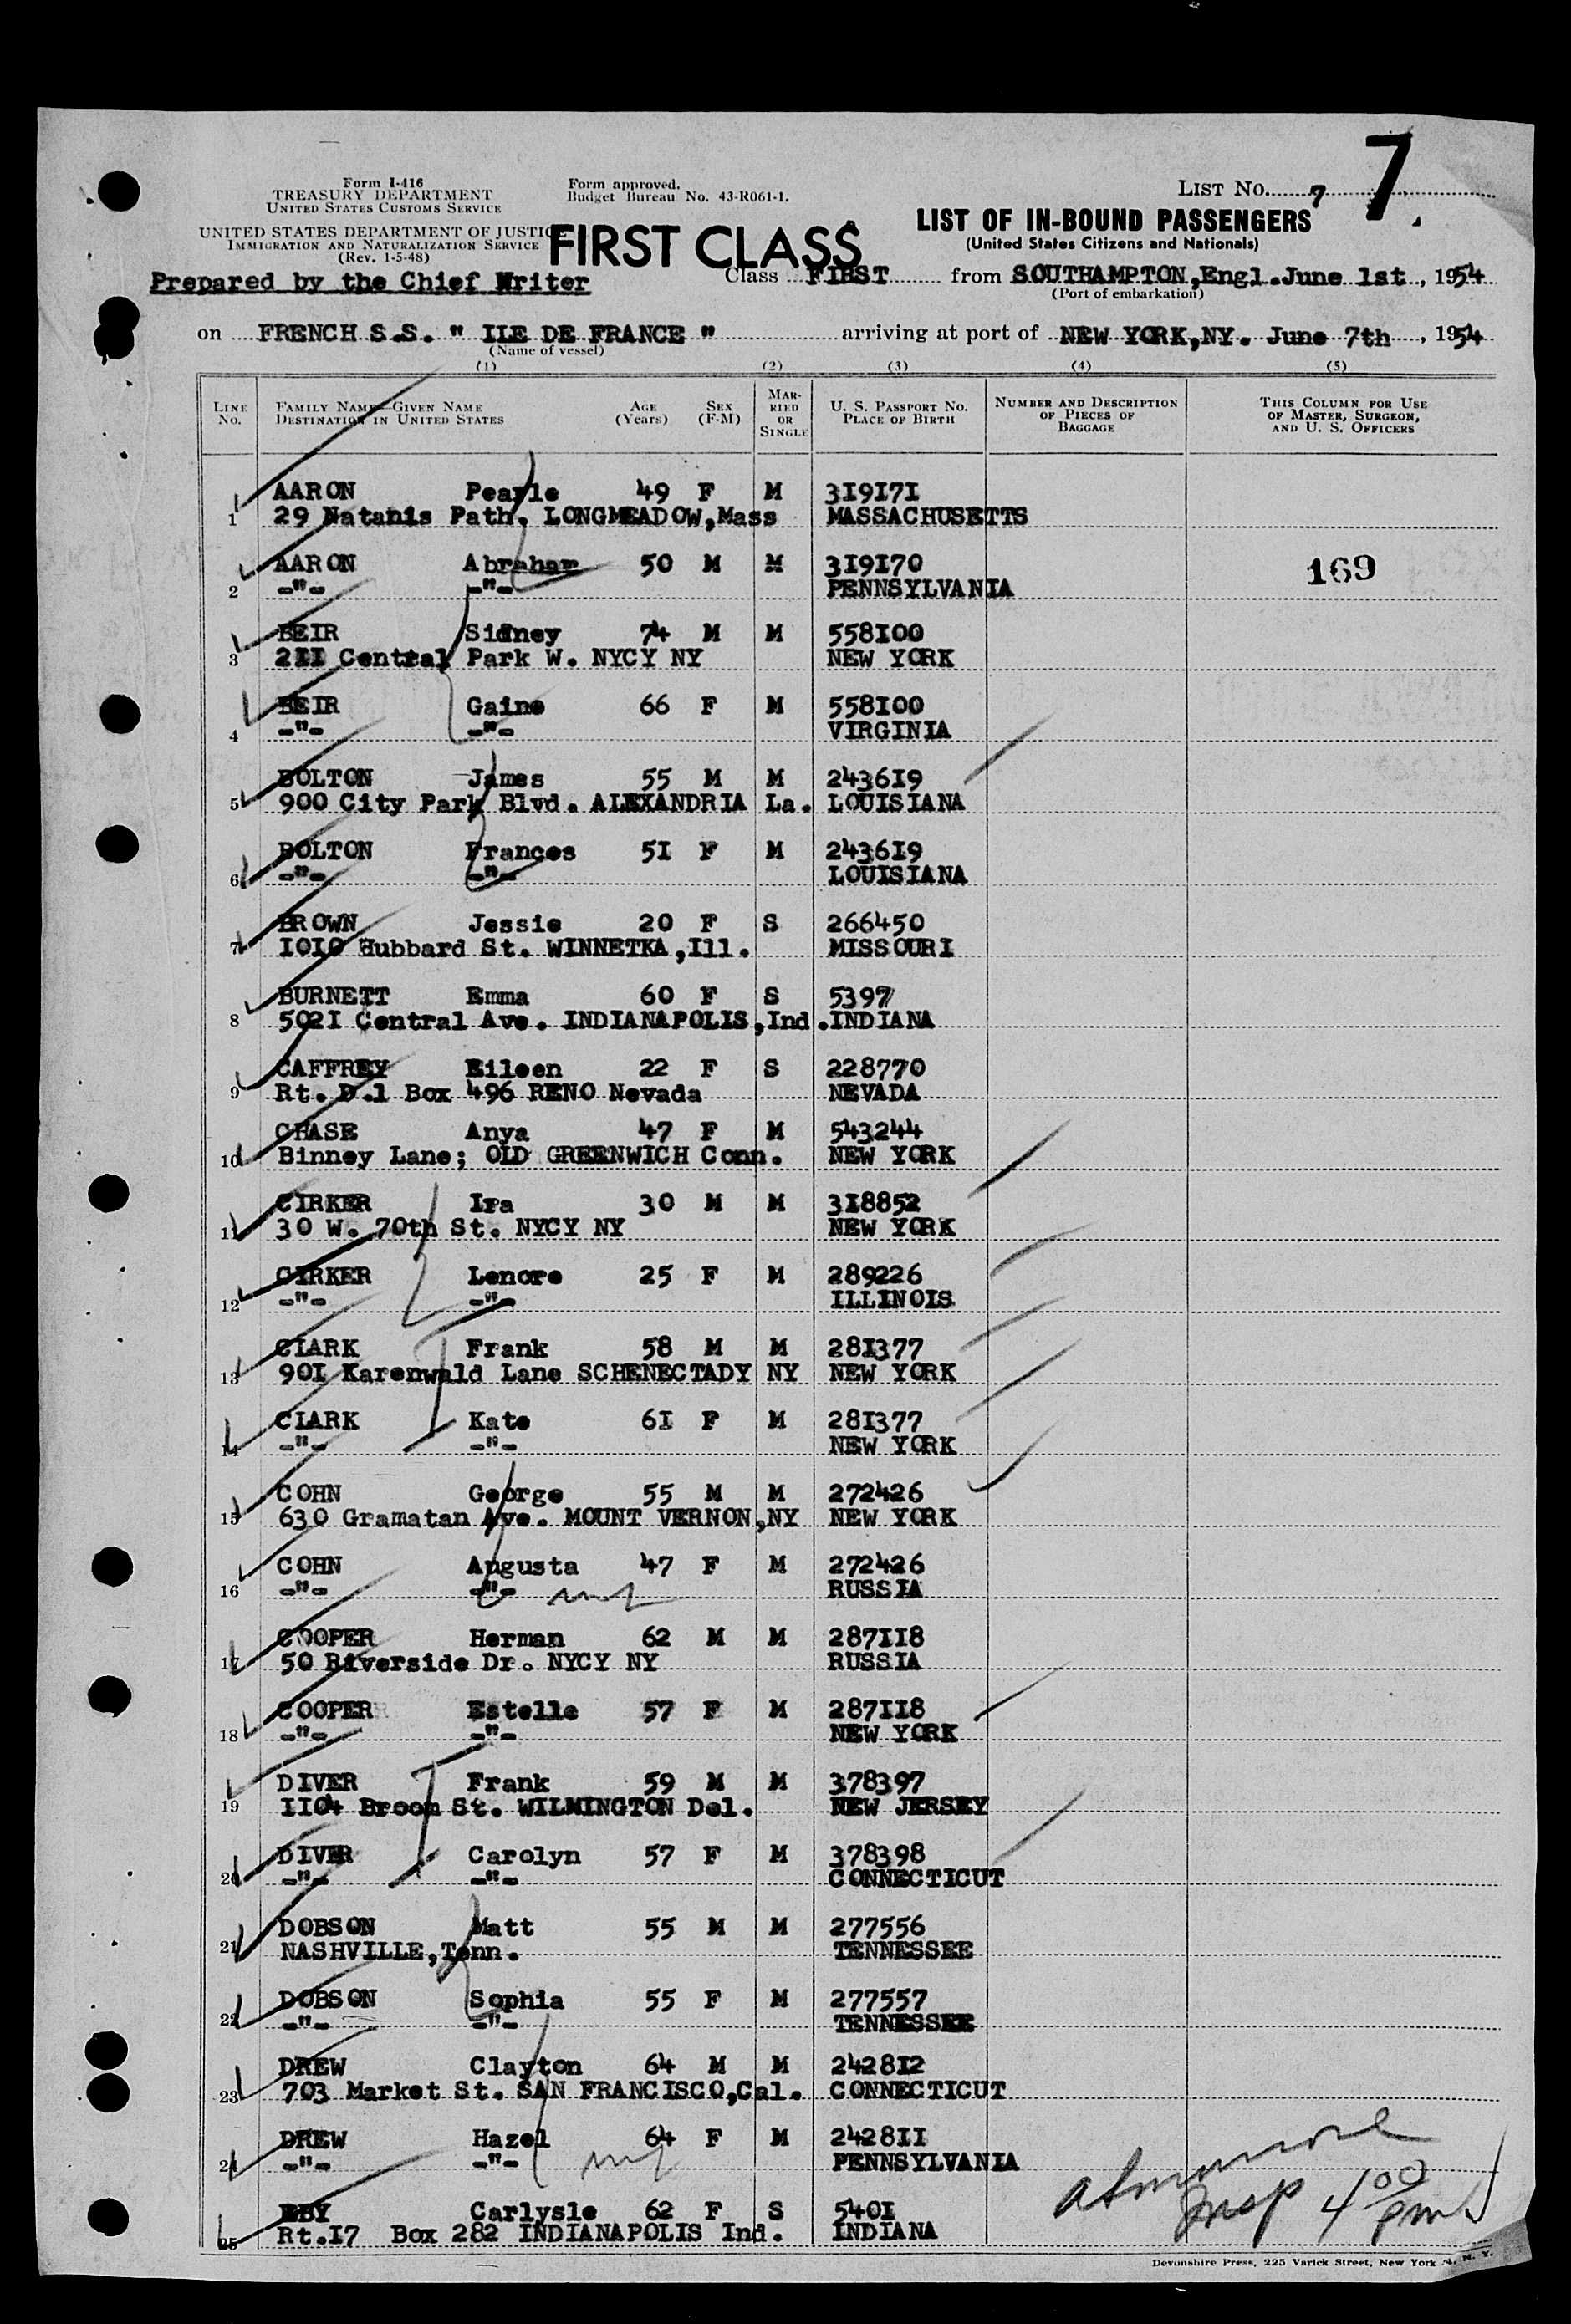 7
Form I-416
TREASURY DEPARTMENT
UNITED STATES CUSTOMS SERVICE
UNITED STATES DEPARTMENT OF JUSTICE
IMMIGRATION AND NATURALIZATION SERVICE
(Rev. 1-5-48)
Form approved.
Budget Bureau No. 43-R061-1.
LIST NO. 7
FIRST CLASS
LIST OF IN-BOUND PASSENGERS
(United States Citizens and Nationals)
Prepared by the Chief Writer
Class FIRST from SOUTHAMPTON,Engl.June 1st, 1954
(Port of embarkation)
on FRENCH S.S. " ILE DE FRANCE " arriving at port of NEW YORK,NY. June 7th, 1954
(Name of vessel)
(1) (2) (3) (4) (5)
LINE NO. FAMILY NAME—GIVEN NAME DESTINATION IN UNITED STATES AGE (Years) SEX (F-M) MARRIED OR SINGLE U. S. PASSPORT NO. PLACE OF BIRTH NUMBER AND DESCRIPTION OF PIECES OF BAGGAGE THIS COLUMN FOR USE OF MASTER, SURGEON, AND U. S. OFFICERS
AARON Pearle 49 F M 319171
1 29 Natanis Path. LONGMEADOW,Mass MASSACHUSETTS
AARON Abraham 50 M M 319170 169
2 -"- -"- PENNSYLVANIA
BEIR Sidney 74 M M 558100
3 211 Central Park W. NYCY NY NEW YORK
BEIR Gaine 66 F M 558100
4 -"- -"- VIRGINIA
BOLTON James 55 M M 243619
5 900 City Park Blvd. ALEXANDRIA La. LOUISIANA
BOLTON Frances 51 F M 243619
6 -"- -"- LOUISIANA
BROWN Jessie 20 F S 266450
7 1010 Hubbard St. WINNETKA,Ill. MISSOURI
BURNETT Emma 60 F S 5397
8 5021 Central Ave. INDIANAPOLIS,Ind. INDIANA
CAFFREY Eileen 22 F S 228770
9 Rt. D.1 Box 496 RENO Nevada NEVADA
CHASE Anya 47 F M 543244
10 Binney Lane; OLD GREENWICH Conn. NEW YORK
CIRKER Ira 30 M M 318852
11 30 W. 70th St. NYCY NY NEW YORK
CIRKER Lenore 25 F M 289226
12 -"- -"- ILLINOIS
CLARK Frank 58 M M 281377
13 901 Karenwald Lane SCHENECTADY NY NEW YORK
CLARK Kate 61 F M 281377
14 -"- -"- NEW YORK
COHN George 55 M M 272426
15 630 Gramatan Ave. MOUNT VERNON,NY NEW YORK
COHN Augusta 47 F M 272426
16 -"- -"- RUSSIA
COOPER Herman 62 M M 287118
17 50 Riverside Dr. NYCY NY RUSSIA
COOPER Estelle 57 F M 287118
18 -"- -"- NEW YORK
DIVER Frank 59 M M 378397
19 1104 Broom St. WILMINGTON Del. NEW JERSEY
DIVER Carolyn 57 F M 378398
20 -"- -"- CONNECTICUT
DOBSON Matt 55 M M 277556
21 NASHVILLE,Tenn. TENNESSEE
DOBSON Sophia 55 F M 277557
22 -"- -"- TENNESSEE
DREW Clayton 64 M M 242812
23 703 Market St. SAN FRANCISCO,Cal. CONNECTICUT
DREW Hazel 64 F M 242811
24 -"- -"- PENNSYLVANIA
EBY Carlysle 62 F S 5401
25 Rt.17 Box 282 INDIANAPOLIS Ind. INDIANA
Insp 4 00 pm
Devonshire Press, 225 Varick Street, New York 14, N. Y.